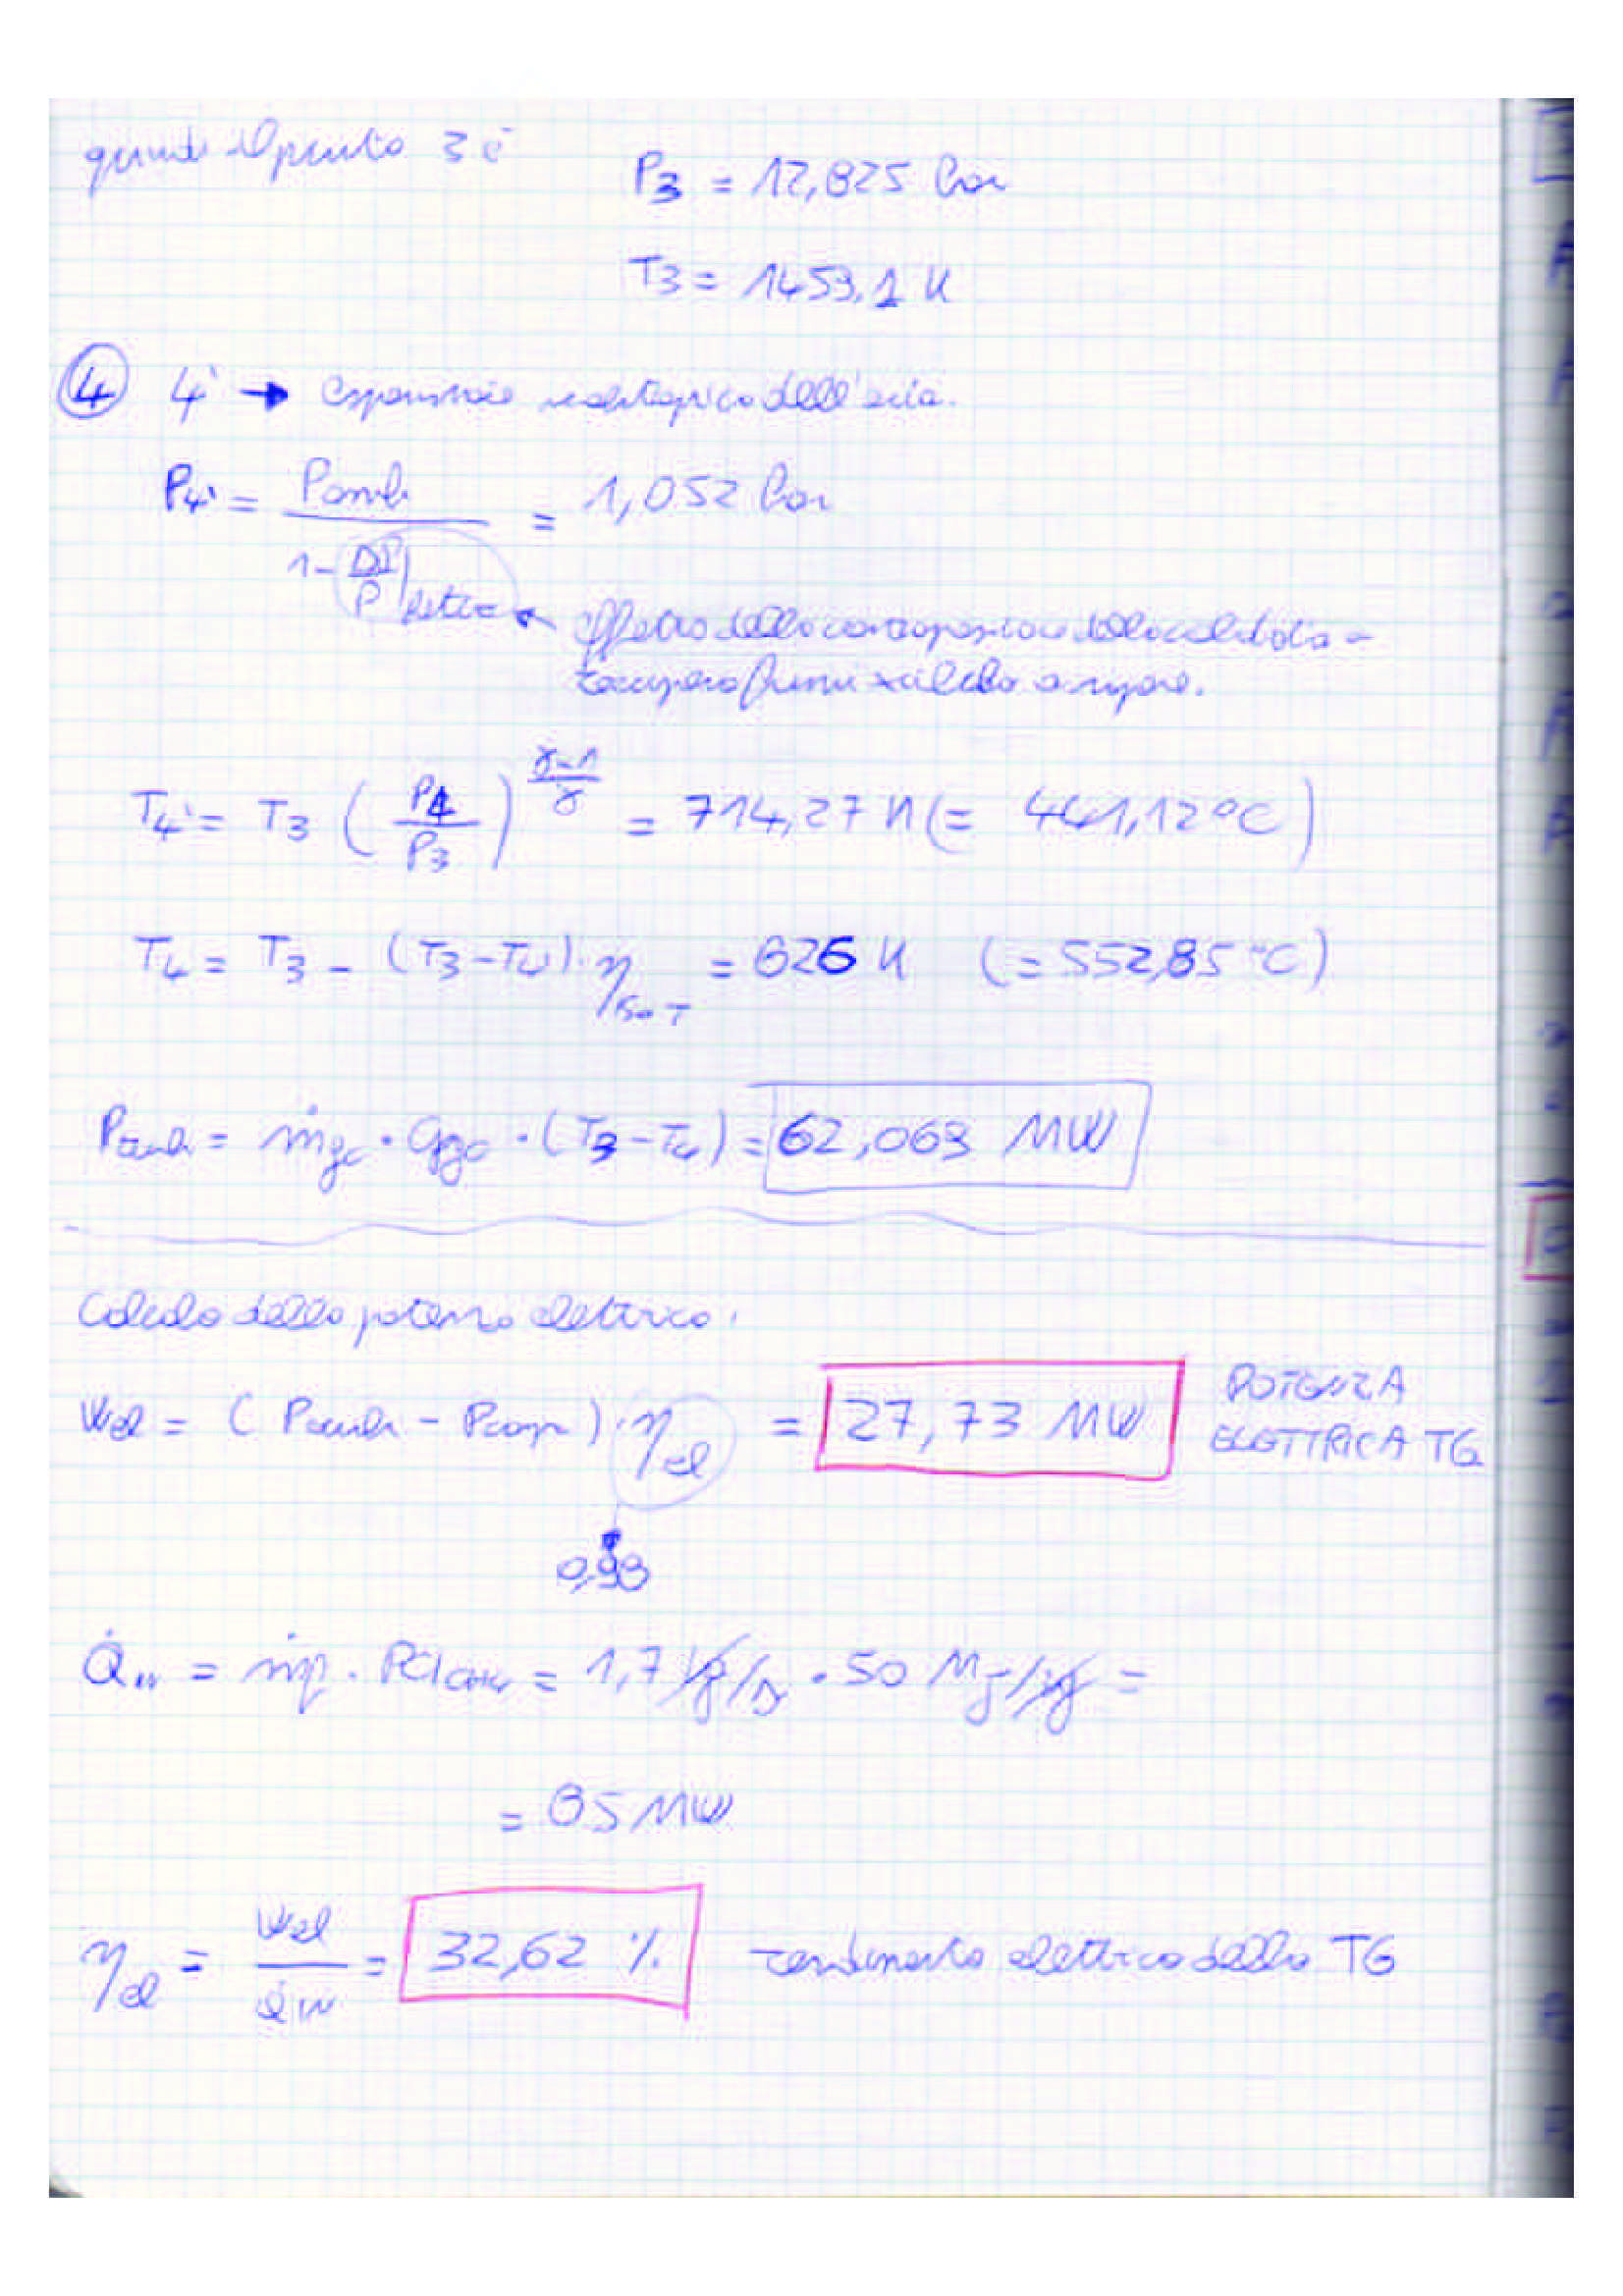 quindi il punto 3 è
P3 = 12,825 bar
T3 = 1453,1 K
4 4' → espansione isoentropica dell'aria.
P4' = Pamb / (1 - ΔP/P|extra) = 1,052 bar
effetto della contropressione della caldaia a
recupero fumi
T4' = T3 (P4/P3)^((γ-1)/γ) = 714,27 K (= 441,12 °C)
T4 = T3 - (T3-T4')·η iso T = 826 K (= 552,85 °C)
ṁgc · cpgc · (T3-T4) = 62,069 MW
Calcolo della potenza elettrica:
Wel = ( - Pcomp)·ηel = 27,73 MW POTENZA
ELETTRICA TG
0,98
Q̇in = · PCI = 1,7 kg/s · 50 MJ/kg =
= 85 MW
ηel = Wel / Q̇in = 32,62 % rendimento elettrico della TG